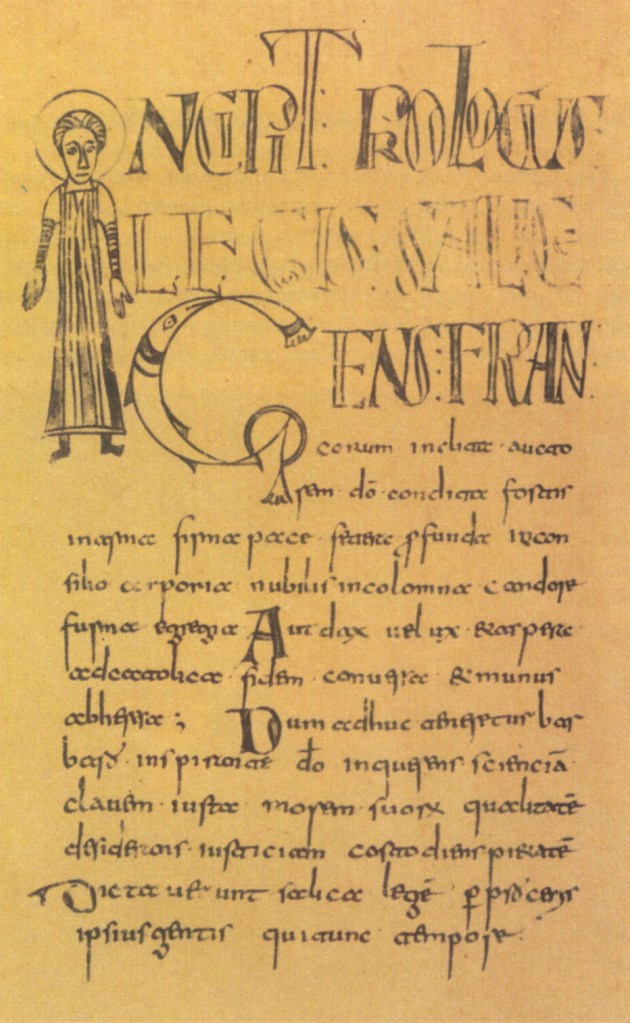 INCIPIT PROLOGUS
LEGIS SALICE
GENS FRAN
corum inclita aucto
rem dō condita fortis
in arma firma pace fetere ꝓfunda in con
silio corporia nubilis incolomna candore
furma egregia Audax uelux & aspera
ad catholica fidem conuersa & munus
ab heresa; Dum adhuc teneretur bar
bar inspirante dō inquerens scienciā
clauem iusta morem suorꝝ qualitatē
desiderans iusticiam costodiens pietatē
Dictauerunt salica legē ꝑ
ipsius gentis qui tunc tempore